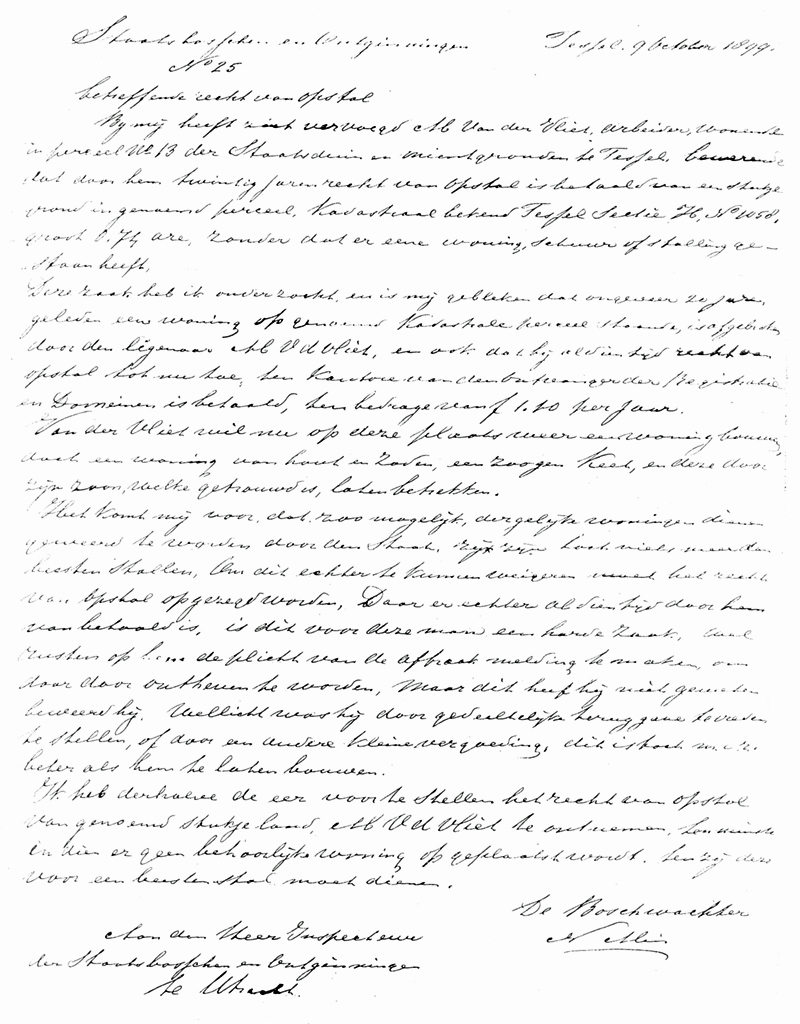 Staatsbosschen en Ontginningen Tessel. 9 October 1899.
No 25
betreffende recht van opstal
By mij heeft zich vervoegd M Van der Vliet, arbeider, wonende
in perceel No 13 der Staatsduin en mientgronden te Tessel, bewerende
dat door hem twintig jaren recht van opstal is betaald van een stukje
grond in genoemd perceel, Kadastraal bekend Tessel Sectie H, No 1058,
groot are, zonder dat er eene woning, schuur of stalling ge-
staan heeft.
Deze zaak heb ik onderzocht, en is mij gebleken dat ongeveer 20 jaren
geleden een woning op genoemd Kadastrale perceel staande, is afgebroken
door den Eigenaar M V d Vliet, en ook dat hij al dien tijd recht van
opstal tot nu toe, ten Kantore van den Ontvanger der Registratie
en Domeinen is betaald, ten bedrage van f 1.10 per jaar.
Van der Vliet wil nu op deze plaats weer een woning bouwen,
doch een woning van hout en zoden, een zoogen Keet, en deze door
zijn zoon, welke getrouwd is, laten betrekken.
Het komt mij voor, dat zoo mogelijk, dergelijke woningen dienen
geweerd te worden door den Staat, zijn toch niets meer dan
beesten stallen, Om dit echter te kunnen weigeren moet het recht
van opstal opgezegd worden, Daar er echter al dien tijd door hem
van betaald is, is dit voor deze man een harde zaak, wel
rusten op hem de plicht van de afbraak melding te maken, om
daar door ontheven te worden, Maar dit heef hij niet geweten
beweerd hij. Wellicht was hij door gedeeltelijke terug gave tevreden
te stellen, of door een andere kleine vergoeding, dit is toch
beter als hem te laten bouwen.
Ik heb derhalve de eer voor te stellen het recht van opstal
van genoemd stukje land, M V d Vliet te ontnemen, ten minste
in dien er geen behoorlijke woning op geplaatst wordt. ten zij deze
voor een beesten stal moet dienen.
De Boschwachter
Aan den Heer Inspecteur
der Staatsbosschen en Ontginningen
te Utrecht.